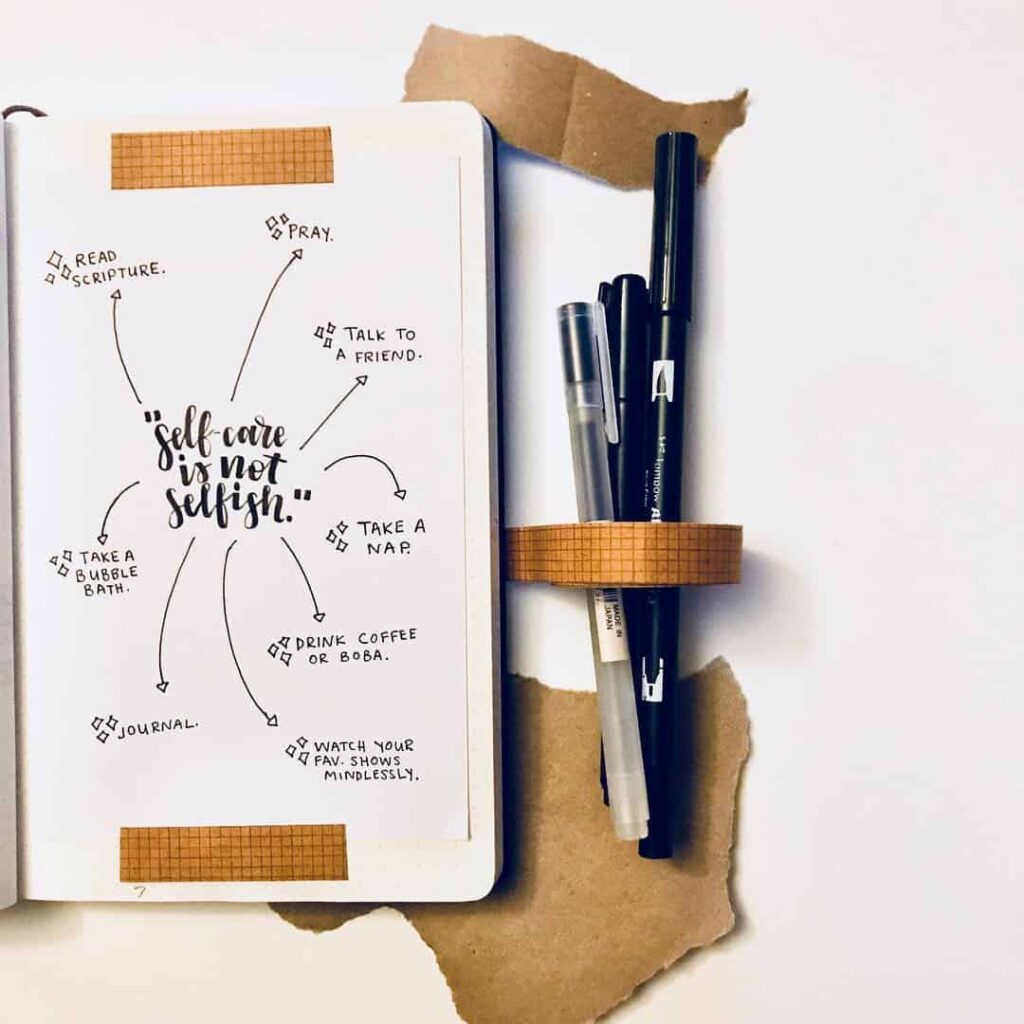 PRAY.
READ
SCRIPTURE.
TALK TO
A FRIEND.
"Self-care
is not
selfish."
TAKE A
NAP.
TAKE A
BUBBLE
BATH.
DRINK COFFEE
OR BOBA.
JOURNAL.
WATCH YOUR
FAV. SHOWS
MINDLESSLY.
7
Tombow
MADE IN
JAPAN